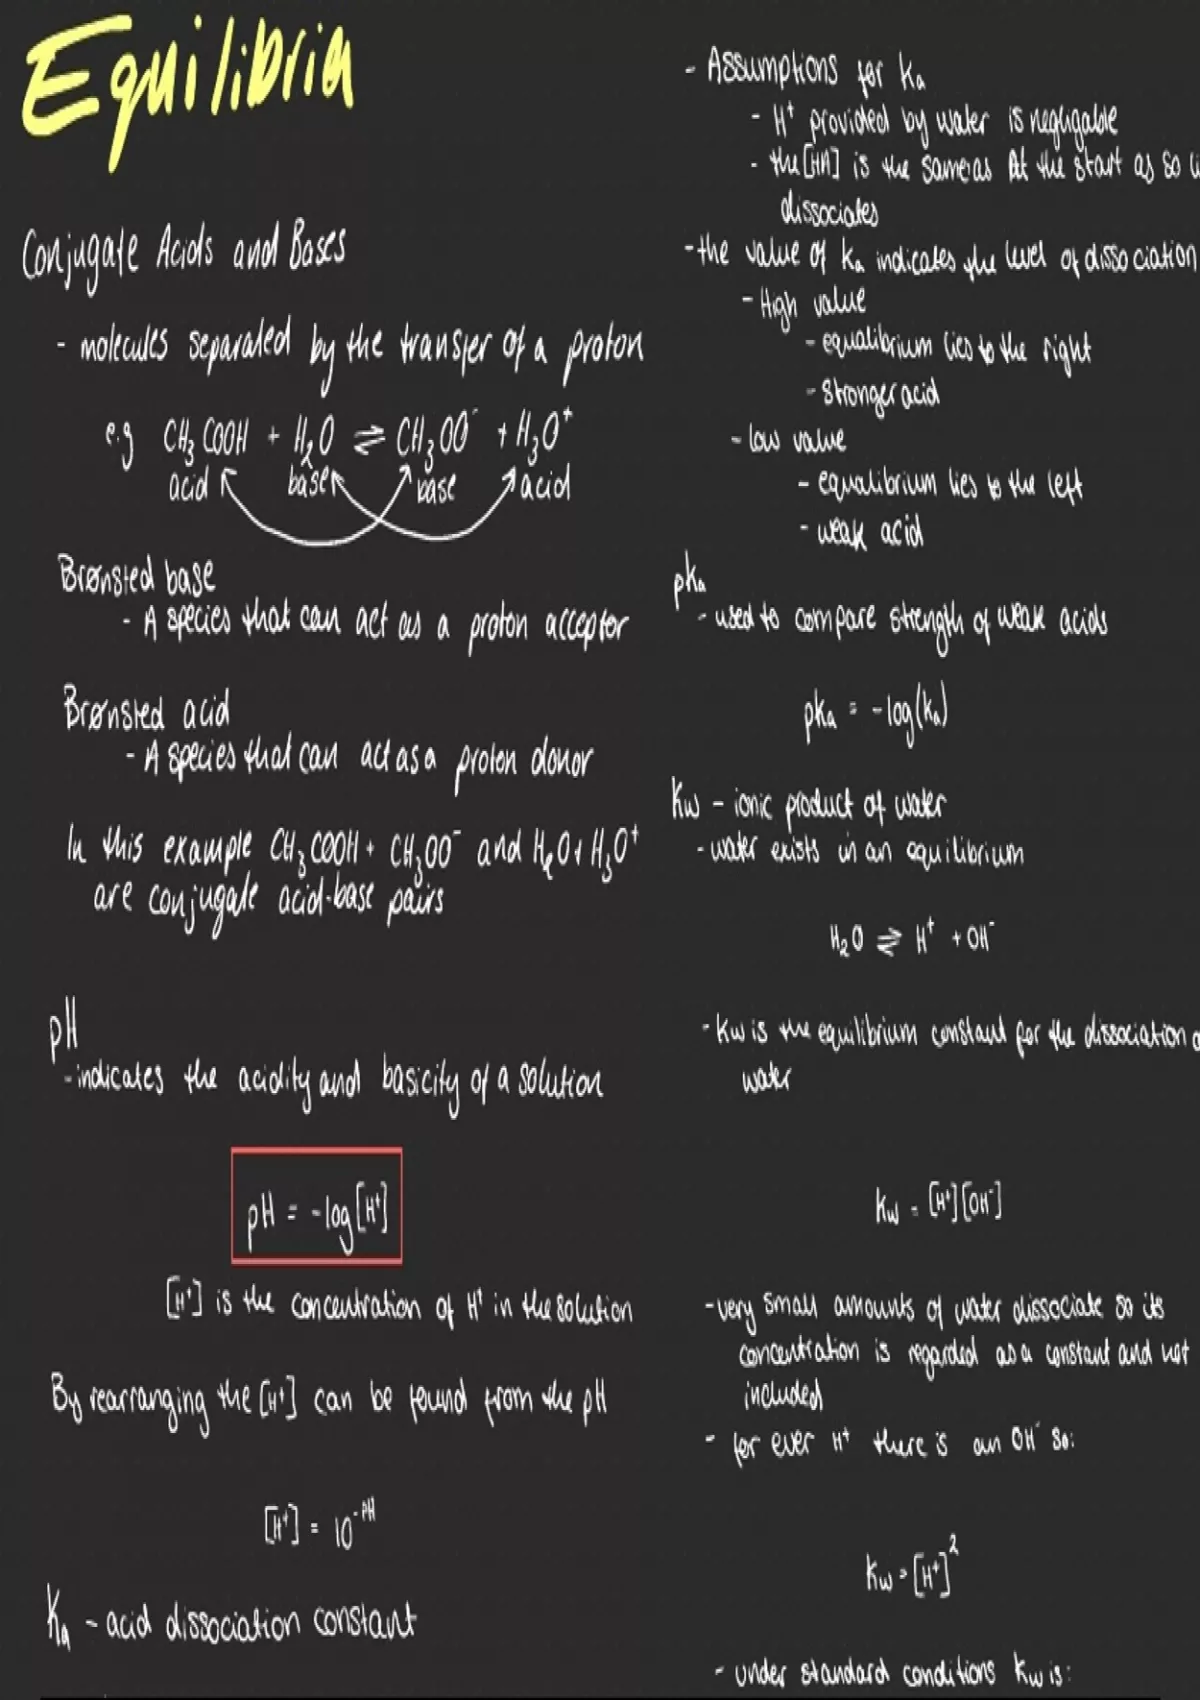 Equilibria
Conjugate Acids and Bases
- molecules separated by the transfer of a proton
e.g CH₃COOH + H₂O ⇌ CH₃OO⁻ + H₃O⁺
acid base base acid
Brønsted base
- A species that can act as a proton acceptor
Brønsted acid
- A species that can act as a proton donor
In this example CH₃COOH + CH₃OO⁻ and H₂O + H₃O⁺
are conjugate acid-base pairs
pH
- indicates the acidity and basicity of a solution
pH = -log[H⁺]
[H⁺] is the concentration of H⁺ in the solution
By rearranging the [H⁺] can be found from the pH
[H⁺] = 10⁻ᵖᴴ
Ka - acid dissociation constant
- Assumptions for Ka
- H⁺ provided by water is negligable
- the [HA] is the same as at the start as so
dissociates
- the value of Ka indicates the level of dissociation
- High value
- equalibrium lies to the right
- stronger acid
- low value
- equalibrium lies to the left
- weak acid
pKa
- used to compare strength of weak acids
pKa = -log(Ka)
Kw - ionic product of water
- water exists in an equilibrium
H₂O ⇌ H⁺ + OH⁻
- Kw is the equilibrium constant for the dissociation
water
Kw = [H⁺][OH⁻]
- very small amounts of water dissociate so its
concentration is regarded as a constant and not
included
- for ever H⁺ there is an OH⁻ so:
Kw = [H⁺]²
- under standard conditions Kw is: